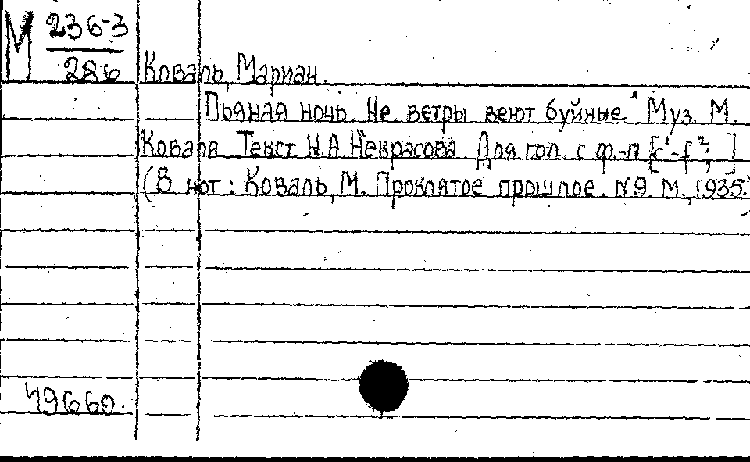 М 236-3
286 Коваль, Мариан.
Пьяная ночь. Не ветры веют буйные." Муз. М.
Коваля. Текст Н.А. Некрасова. Для гол. с ф.-п.
(В нот: Коваль, М. Проклятое прошлое. №9. М., 1935.)
49660.